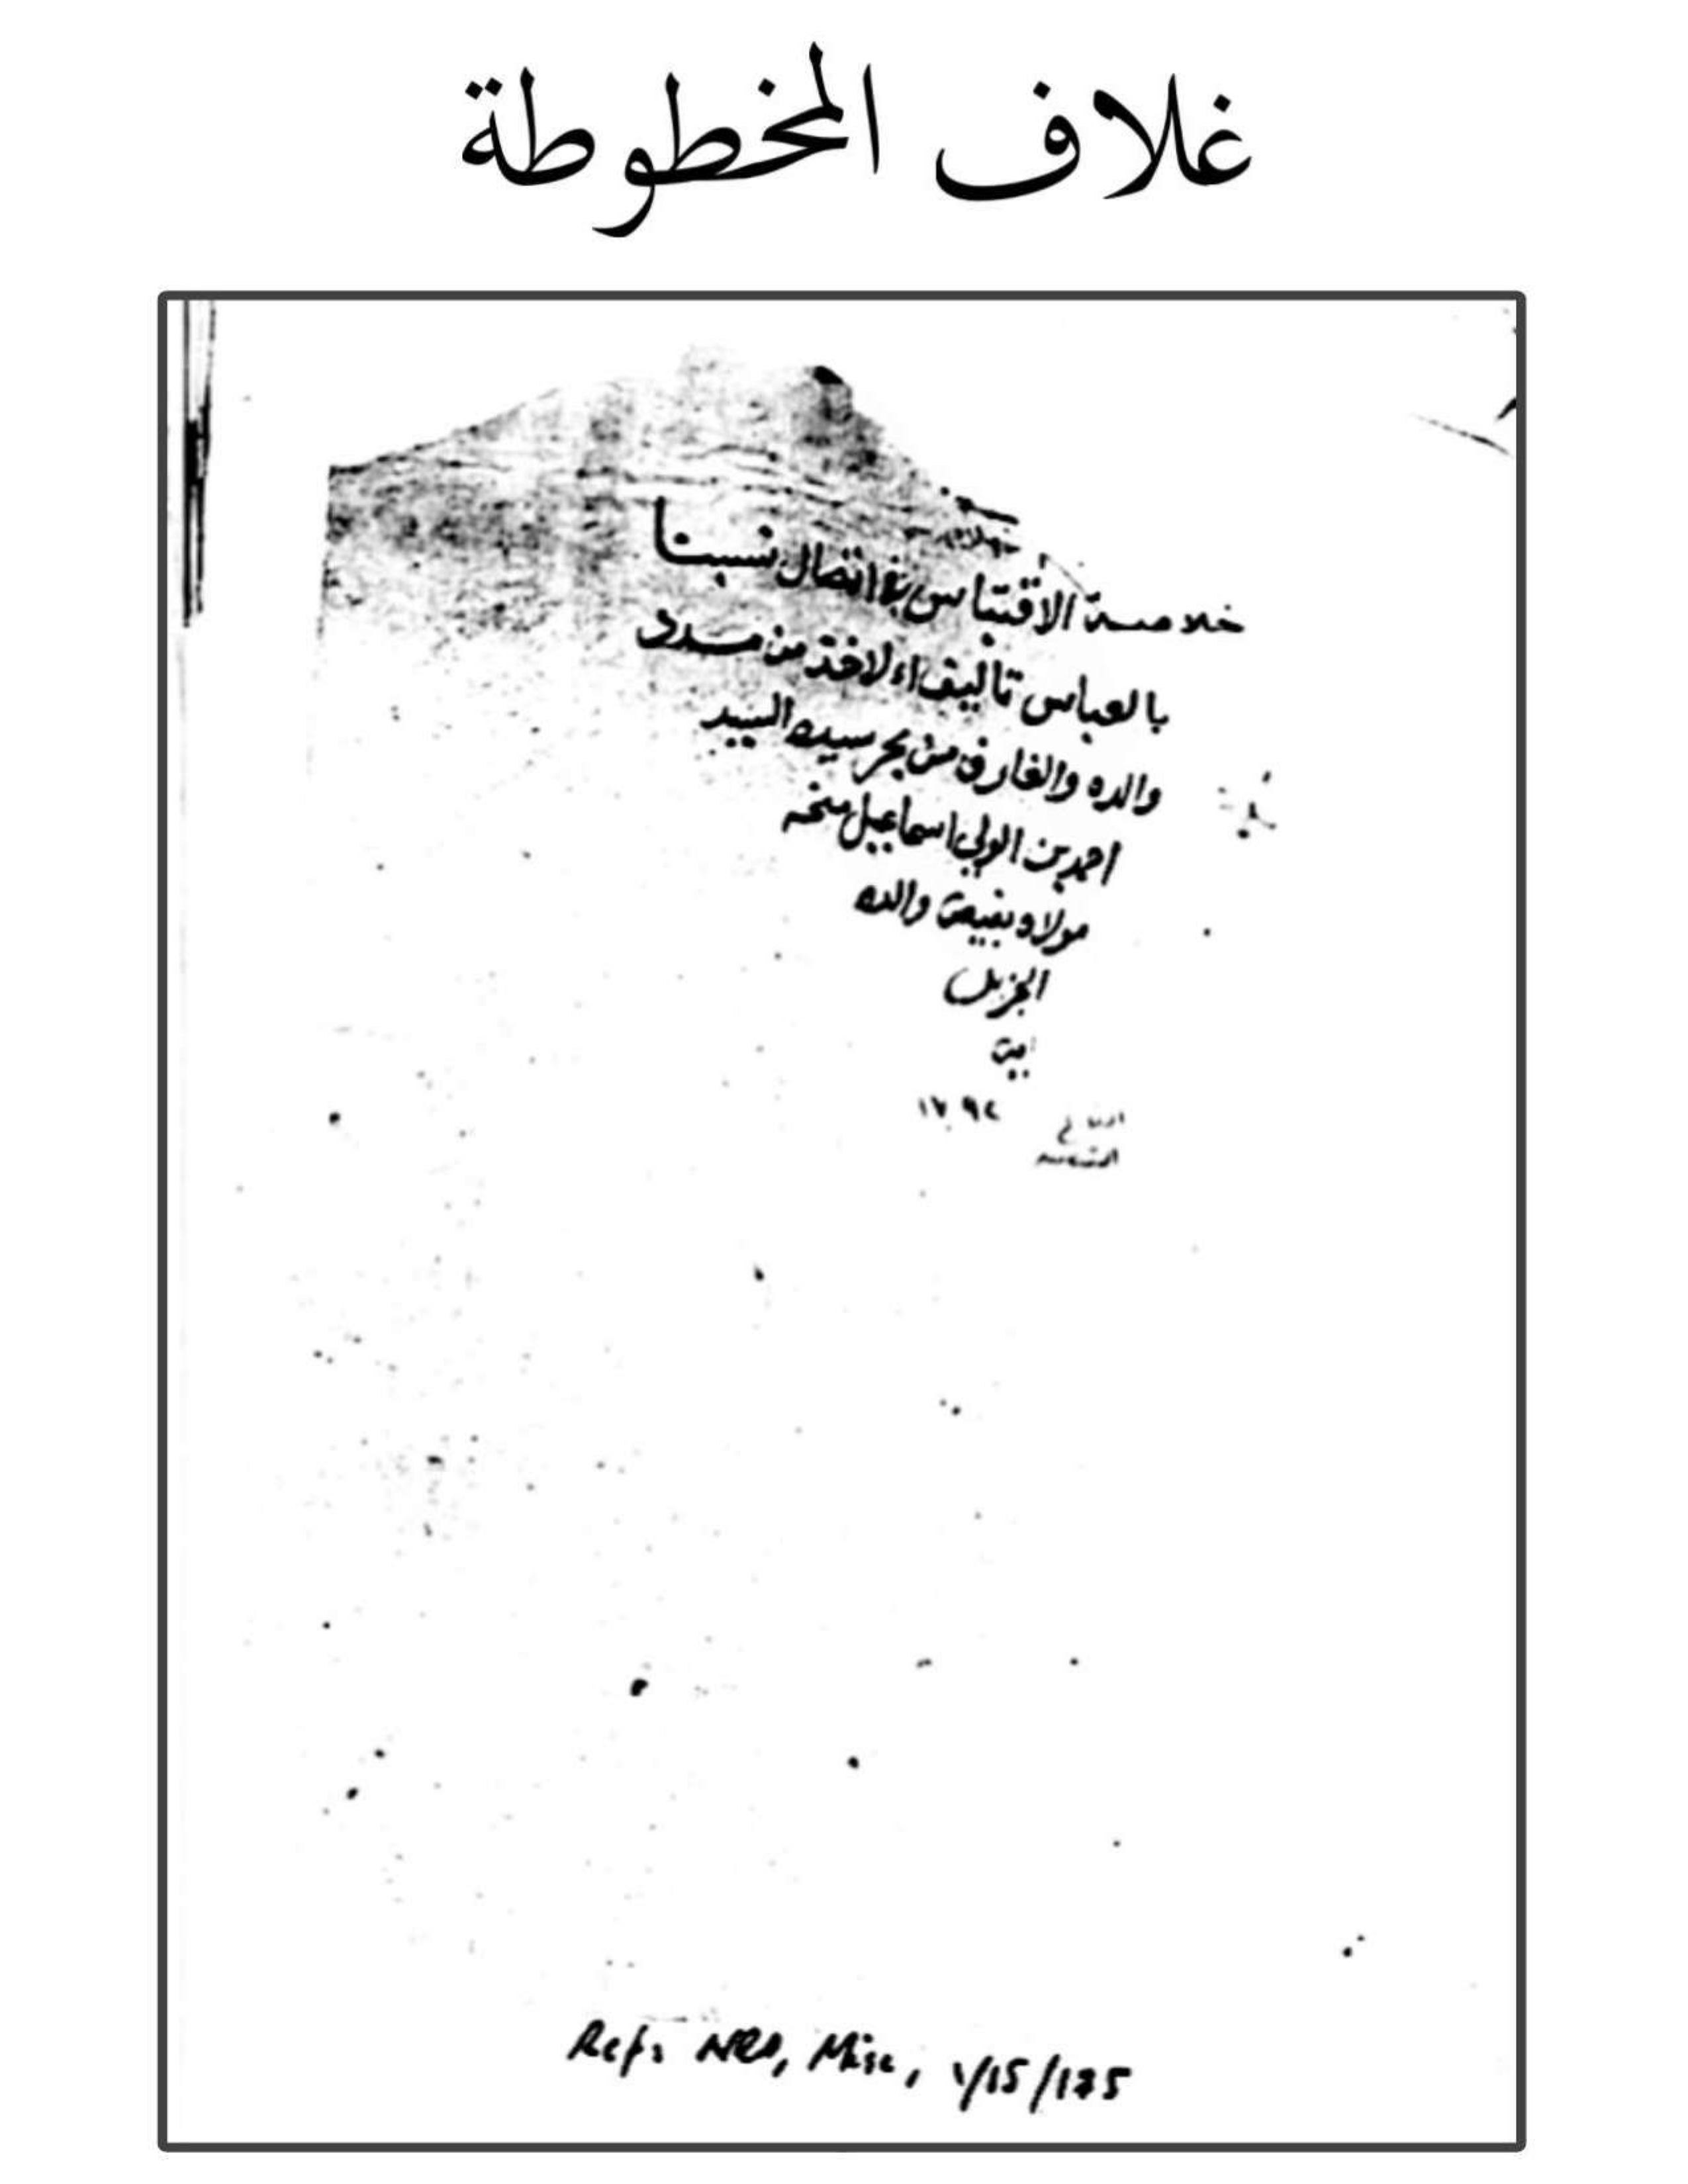 غلاف المخطوطة
خلاصة الاقتباس في اتصال نسبنا
بالعباس تأليف الاخذ من مدد
والده والغارف من بحر سيده السيد
احمد بن الولي اسماعيل منحه
مولاه ببنيت والده
الجزيل
Ref: NRO, Misc, 1/15/175